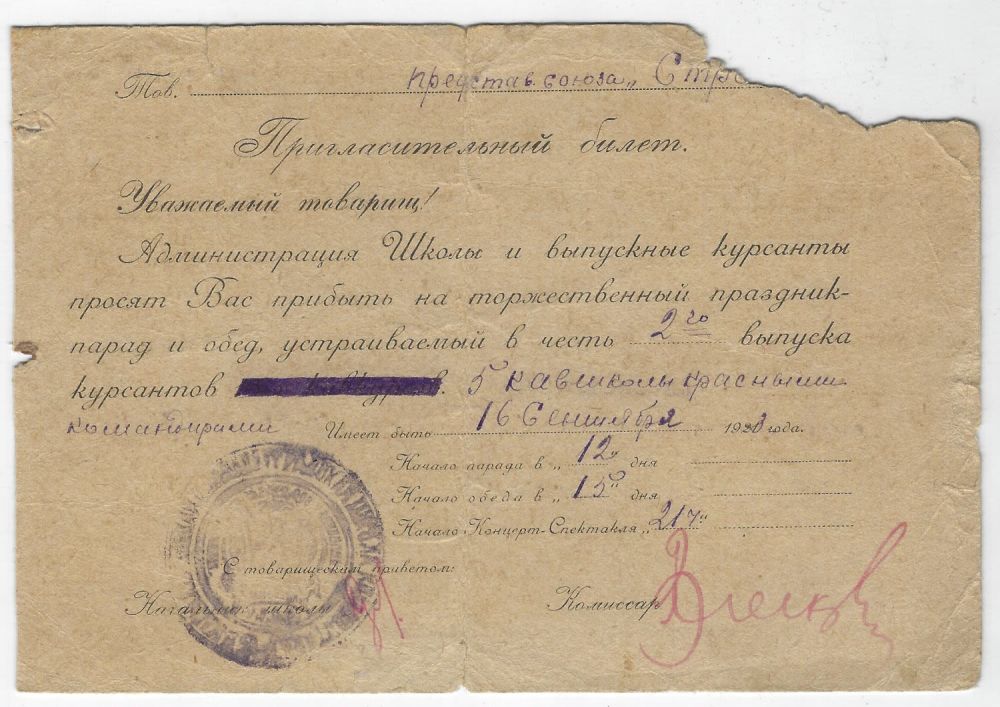 Тов. представ. союза „Стро
Пригласительный билет.
Уважаемый товарищ!
Администрация Школы и выпускные курсанты
просят Вас прибыть на торжественный праздник-
парад и обед, устраиваемый в честь 2го выпуска
курсантов 5 кавшколы красными
командирами Имеет быть 16 Сентября 192 года.
Начало парада в „ 12 " дня
Начало обеда в „ 15 " дня
Начало Концерт-Спектакля „ 21 ч "
С товарищеским приветом:
Начальник школы Комиссар